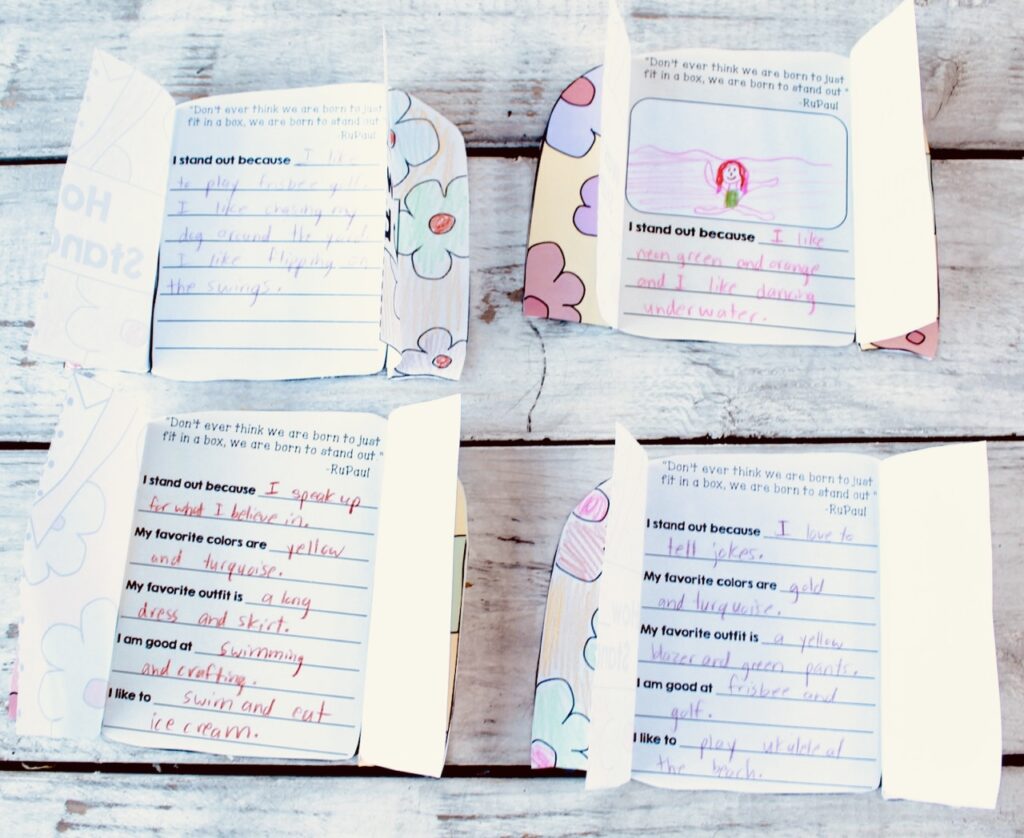 "Don't ever think we are born to just
fit in a box, we are born to stand out
-RuPaul
I stand out because I like
to play frisbee golf.
I like chasing my
dog around the yard.
I like flipping on
the swings.
"Don't ever think we are born to just
fit in a box, we are born to stand out"
-RuPaul
I stand out because I like
neon green and orange
and I like dancing
underwater.
"Don't ever think we are born to just
fit in a box, we are born to stand out"
-RuPaul
I stand out because I speak up
for what I believe in.
My favorite colors are yellow
and turquoise.
My favorite outfit is a long
dress and skirt.
I am good at swimming
and crafting.
I like to swim and eat
ice cream.
"Don't ever think we are born to just
fit in a box, we are born to stand out"
-RuPaul
I stand out because I love to
tell jokes.
My favorite colors are gold
and turquoise.
My favorite outfit is a yellow
blazer and green pants.
I am good at frisbee and
golf.
I like to play ukulele at
the beach.